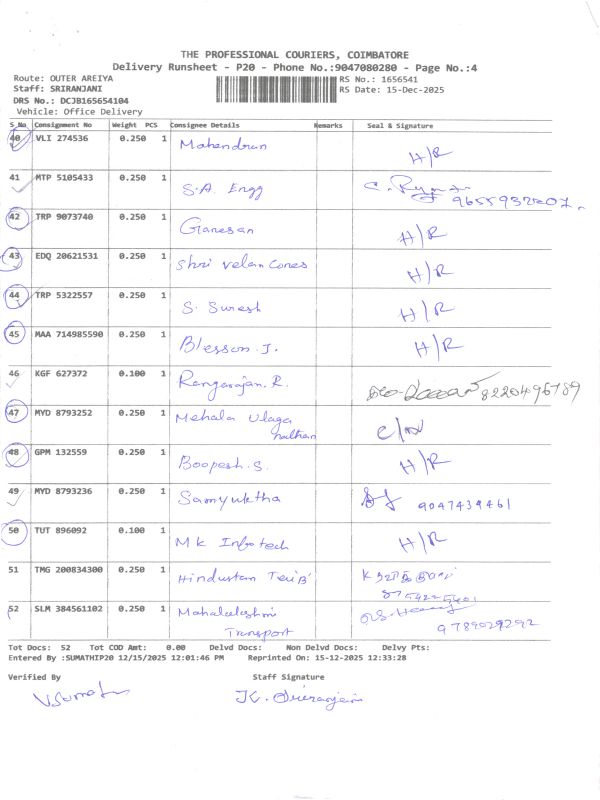 THE PROFESSIONAL COURIERS, COIMBATORE
Delivery Runsheet - P20 - Phone No.:9047080280 - Page No.:4
Route: OUTER AREIYA RS No.: 1656541
Staff: SRIRANJANI RS Date: 15-Dec-2025
DRS No.: DCJB165654104
Vehicle: Office Delivery
S_No Consignment No Weight PCS Consignee Details Remarks Seal & Signature
40 VLI 274536 0.250 1 Mahendran H/R
41 MTP 5105433 0.250 1 S.A. Engg
42 TRP 9073740 0.250 1 Ganesan H/R
43 EDQ 20621531 0.250 1 Shri Velan Cones H/R
44 TRP 5322557 0.250 1 S. Suresh H/R
45 MAA 714985590 0.250 1 Blesson.J. H/R
46 KGF 627372 0.100 1 Rangarajan.R. 8220496789
47 MYD 8793252 0.250 1 Mehala Ulaga
nathan
48 GPM 132559 0.250 1 Boopesh.S. H/R
49 MYD 8793236 0.250 1 Samyuktha 9047439461
50 TUT 896092 0.100 1 MK Infotech H/R
51 TMG 200834300 0.250 1 Hindustan
52 SLM 384561102 0.250 1 Mahalakshmi
Transport 9789029292
Tot Docs: 52 Tot COD Amt: 0.00 Delvd Docs: Non Delvd Docs: Delvy Pts:
Entered By :SUMATHIP20 12/15/2025 12:01:46 PM Reprinted On: 15-12-2025 12:33:28
Verified By Staff Signature